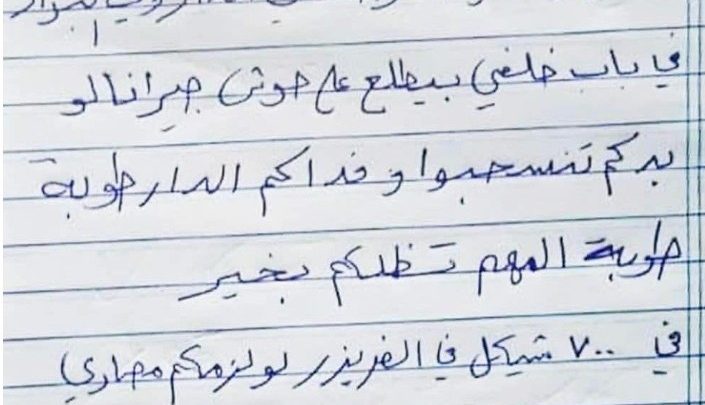 في باب خلفي بيطلع على حوش جيرانا لو
بدكم تنسحبوا وفداكم الدار طوبة
طوبة المهم تظلكم بخير
في ٧٠٠ شيكل في الفريزر لو لزمكم مصاري